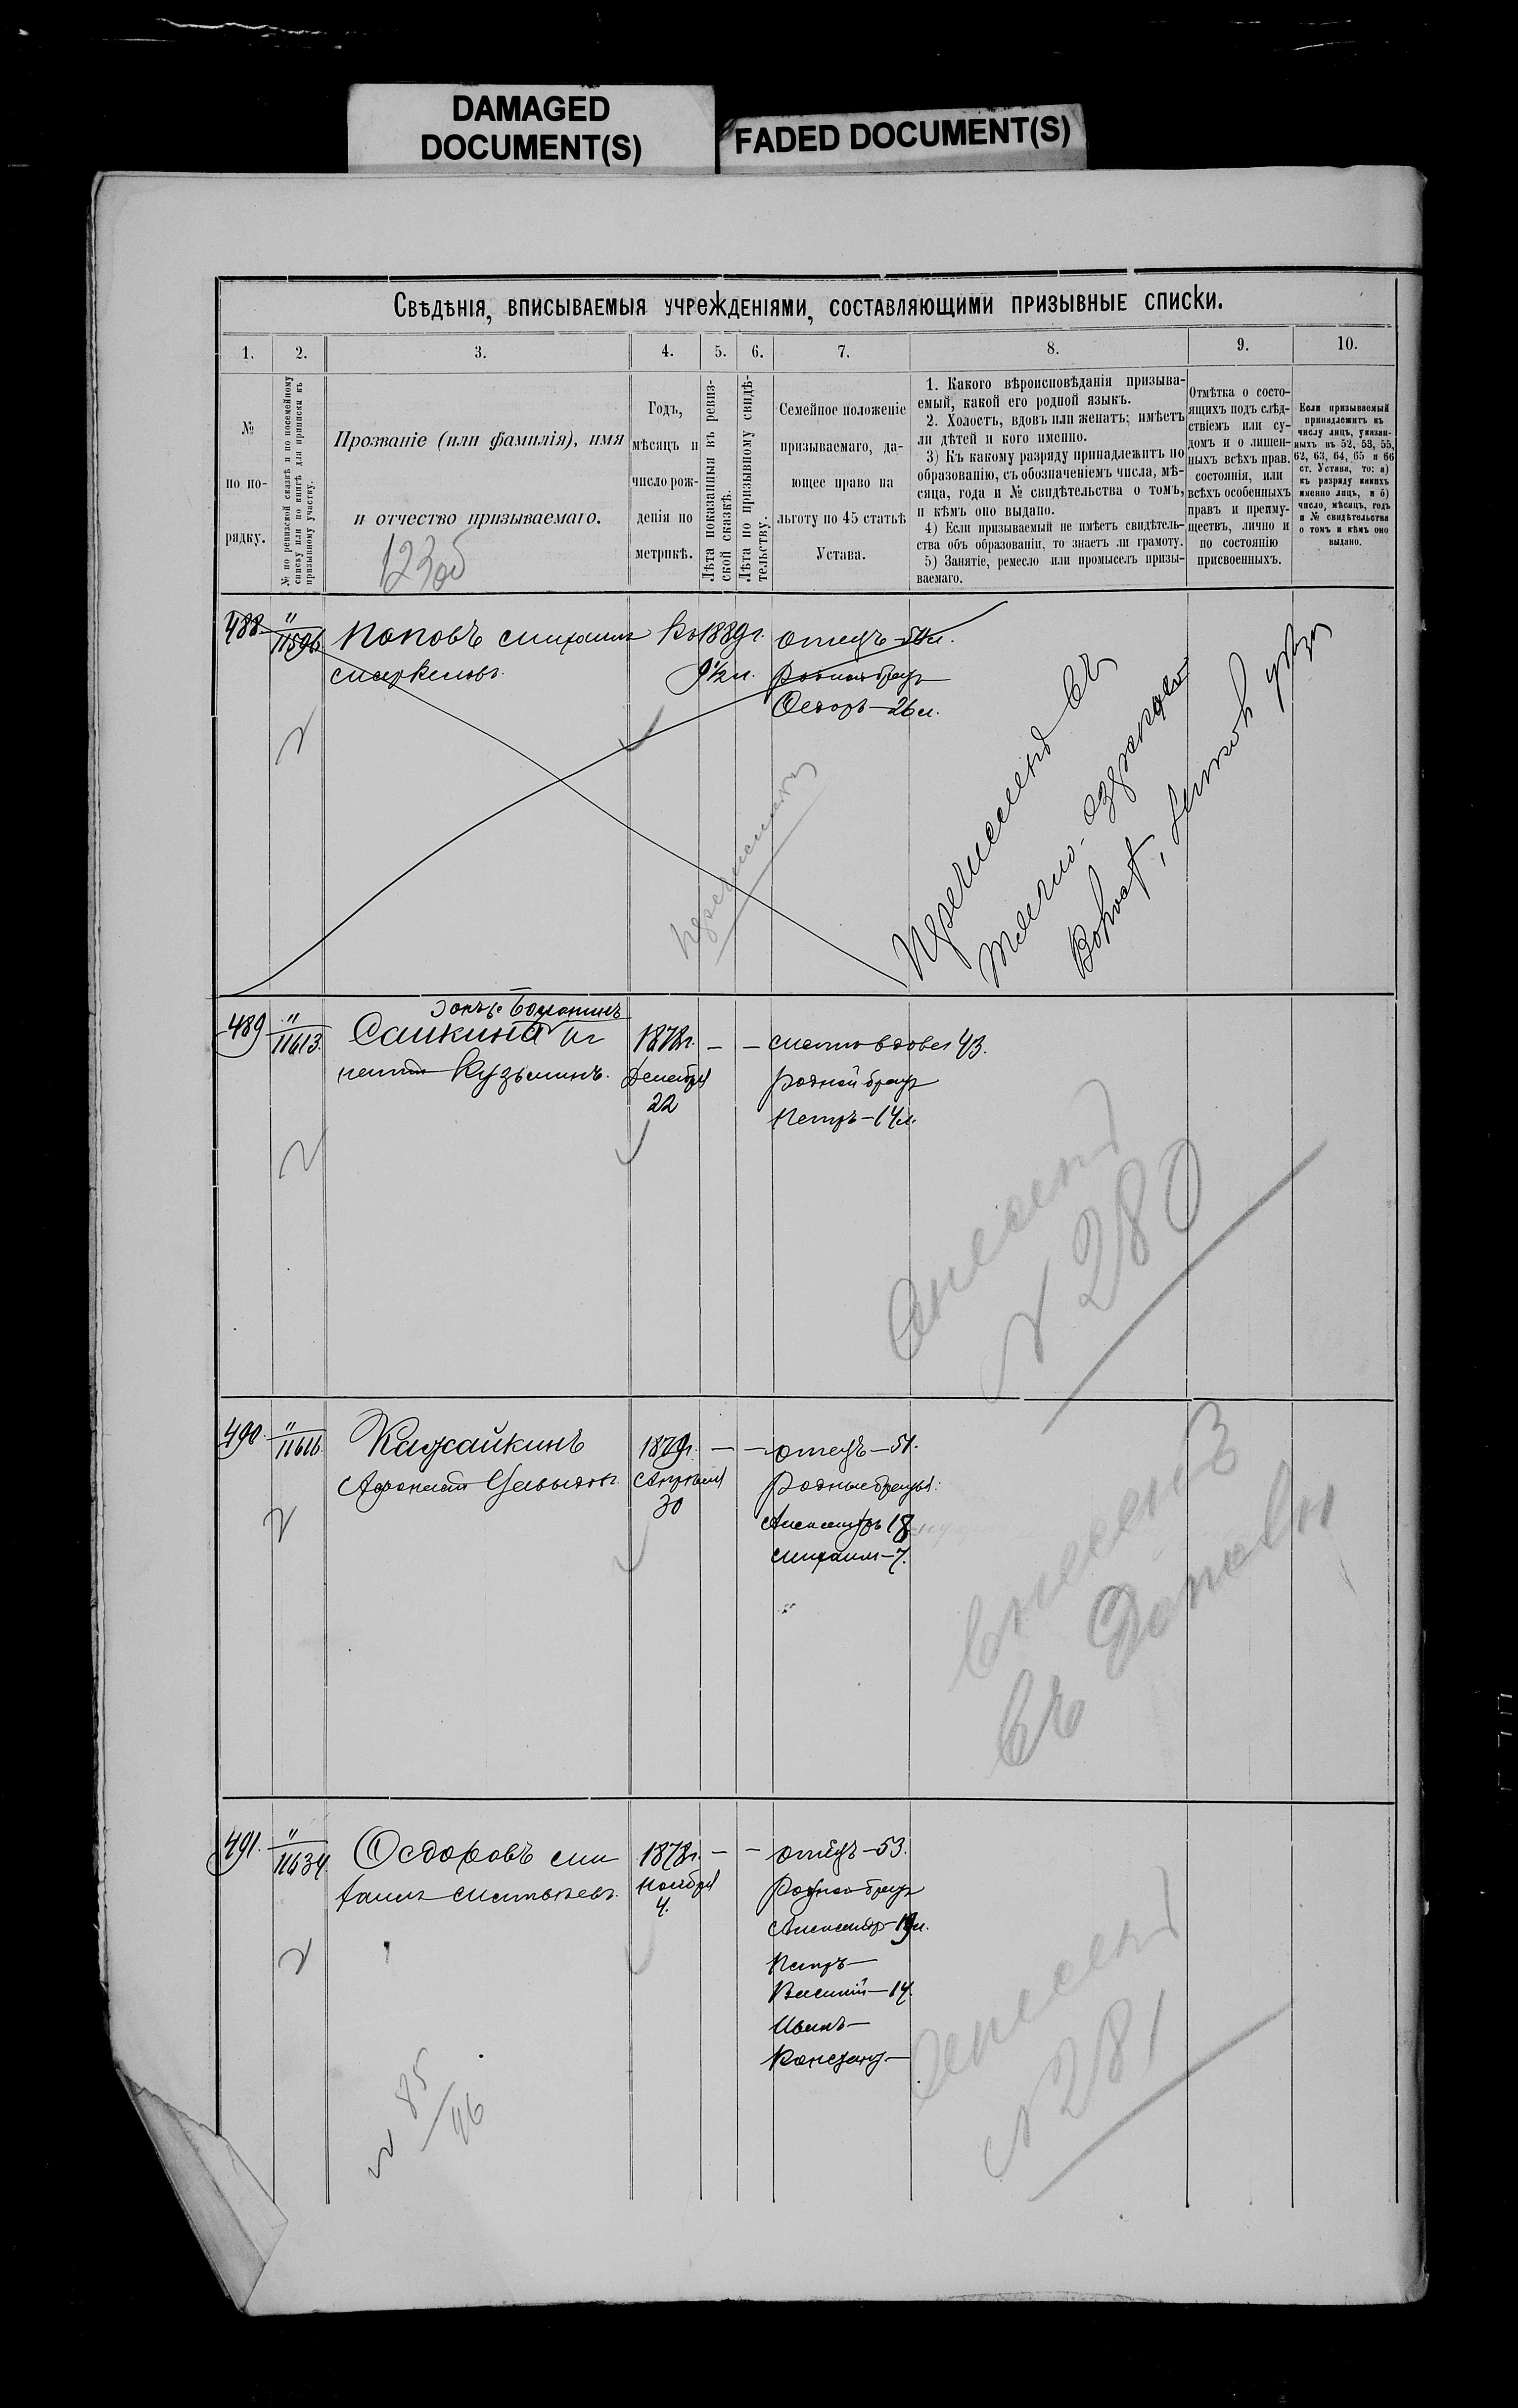 DAMAGED
DOCUMENT(S)
FADED DOCUMENT(S)
Свѣдѣнія, вписываемыя учрежденіями, составляющими призывные списки.
1. 2. 3. 4. 5. 6. 7. 8. 9. 10.
№
по по-
рядку.
№ по ревизской сказкѣ и по посемейному
списку или по книгѣ для приписки къ
призывному участку.
Прозваніе (или фамилія), имя
и отчество призываемаго.
Годъ,
мѣсяцъ и
число рож-
денія по
метрикѣ.
Лѣта показанныя въ ревиз-
ской сказкѣ.
Лѣта по призывному свидѣ-
тельству.
Семейное положеніе
призываемаго, да-
ющее право на
льготу по 45 статьѣ
Устава.
1. Какого вѣроисповѣданія призыва-
емый, какой его родной языкъ.
2. Холостъ, вдовъ или женатъ; имѣетъ
ли дѣтей и кого именно.
3) Къ какому разряду принадлежитъ по
образованію, съ обозначеніемъ числа, мѣ-
сяца, года и № свидѣтельства о томъ,
и кѣмъ оно выдано.
4) Если призываемый не имѣетъ свидѣтель-
ства объ образованіи, то знаетъ ли грамоту.
5) Занятіе, ремесло или промыселъ призы-
ваемаго.
Отмѣтка о состо-
ящихъ подъ слѣд-
ствіемъ или су-
домъ и о лишен-
ныхъ всѣхъ прав.
состоянія, или
всѣхъ особенныхъ
правъ и преиму-
ществъ, лично и
по состоянію
присвоенныхъ.
Если призываемый
принадлежитъ къ
числу лицъ, указан-
ныхъ въ 52, 53, 55,
62, 63, 64, 65 и 66
ст. Устава, то: а)
къ разряду какихъ
именно лицъ, и б)
число, мѣсяцъ, годъ
и № свидѣтельства
о томъ и кѣмъ оно
выдано.
488 " 11596 Поповъ Михаилъ Въ 1889г. отецъ
9½ л. родной братъ
Ѳедоръ—26 л.
Перечисленъ въ
489 " 11613. Саикинъ Иг 1878г. — — мать вдова 43.
натій Кузьминъ. Декабря родной братъ
22 Петръ—14 л.
Внесенъ
№ 280
490. " 11616 Кажайкинъ 1879г. — — отецъ—51.
Афонасій Апрѣля родные братья:
30 Александръ 18
Михаилъ—7.
Внесенъ
въ
491. " 11634 Ѳедоровъ Ми 1878г. — — отецъ—53.
хаилъ Матвѣевъ. Ноября родной братъ
4. Александр—19 л.
Петръ—
Василій—14.
Иванъ—
Констант—
Внесенъ
№ 281
№ 85